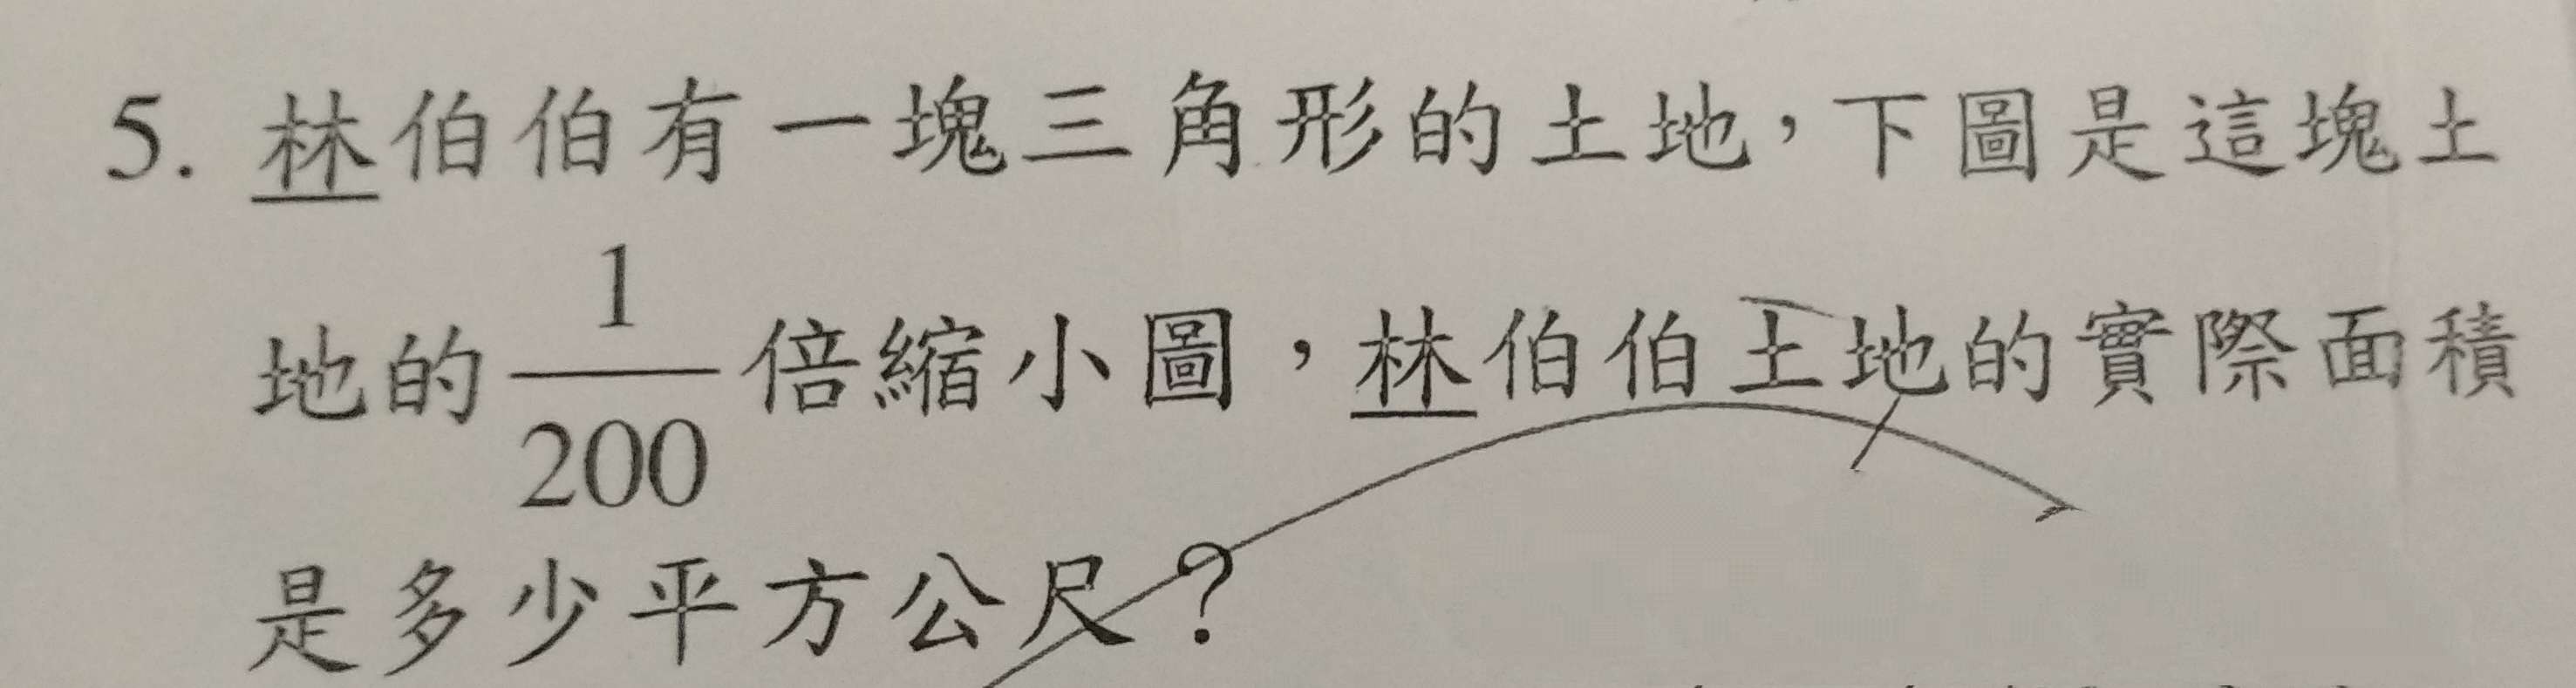 5. 林伯伯有一塊三角形的土地，下圖是這塊土
地的 1/200 倍縮小圖，林伯伯土地的實際面積
是多少平方公尺？